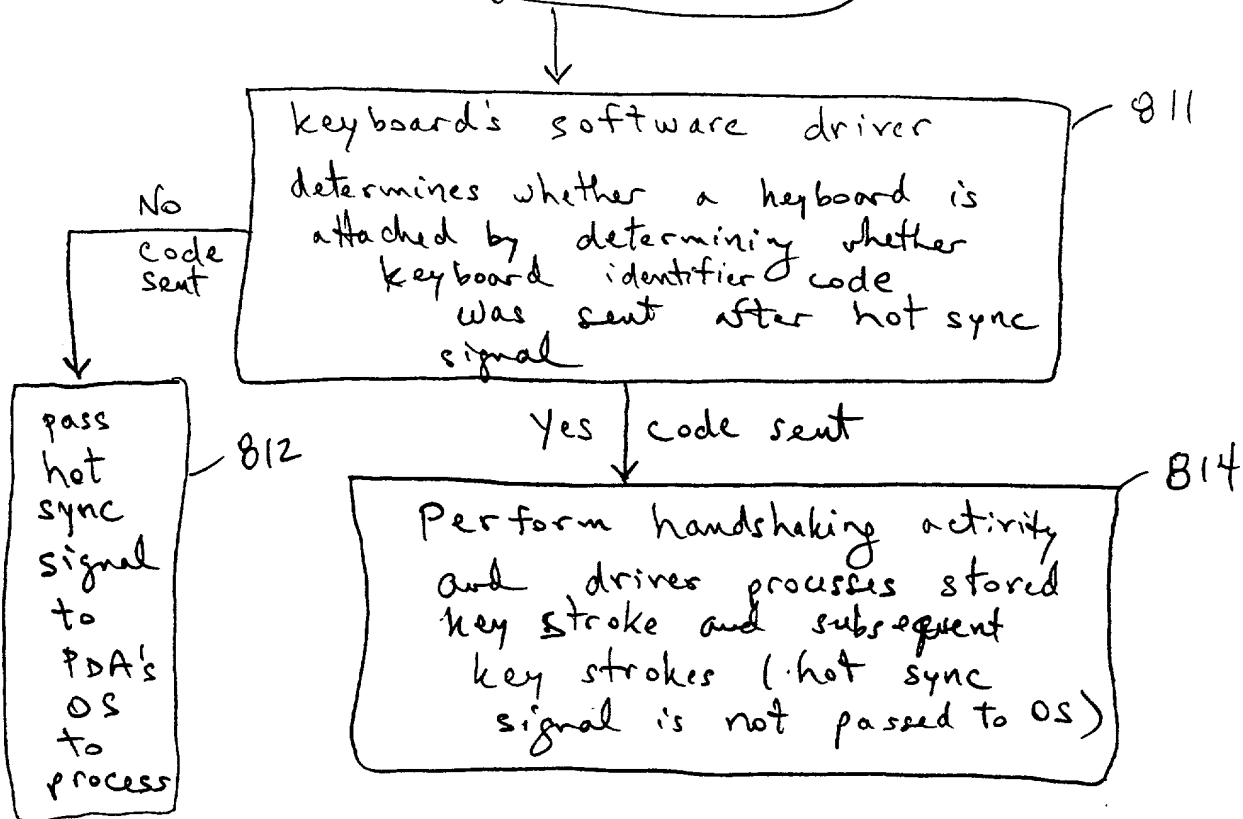 keyboard's software driver
determines whether a keyboard is
attached by determining whether
keyboard identifier code
was sent after hot sync
signal
811
No
code
sent
Yes code sent
pass
hot
sync
signal
to
PDA's
OS
to
process
812
Perform handshaking activity
and driver processes stored
key stroke and subsequent
key strokes (hot sync
signal is not passed to OS)
814